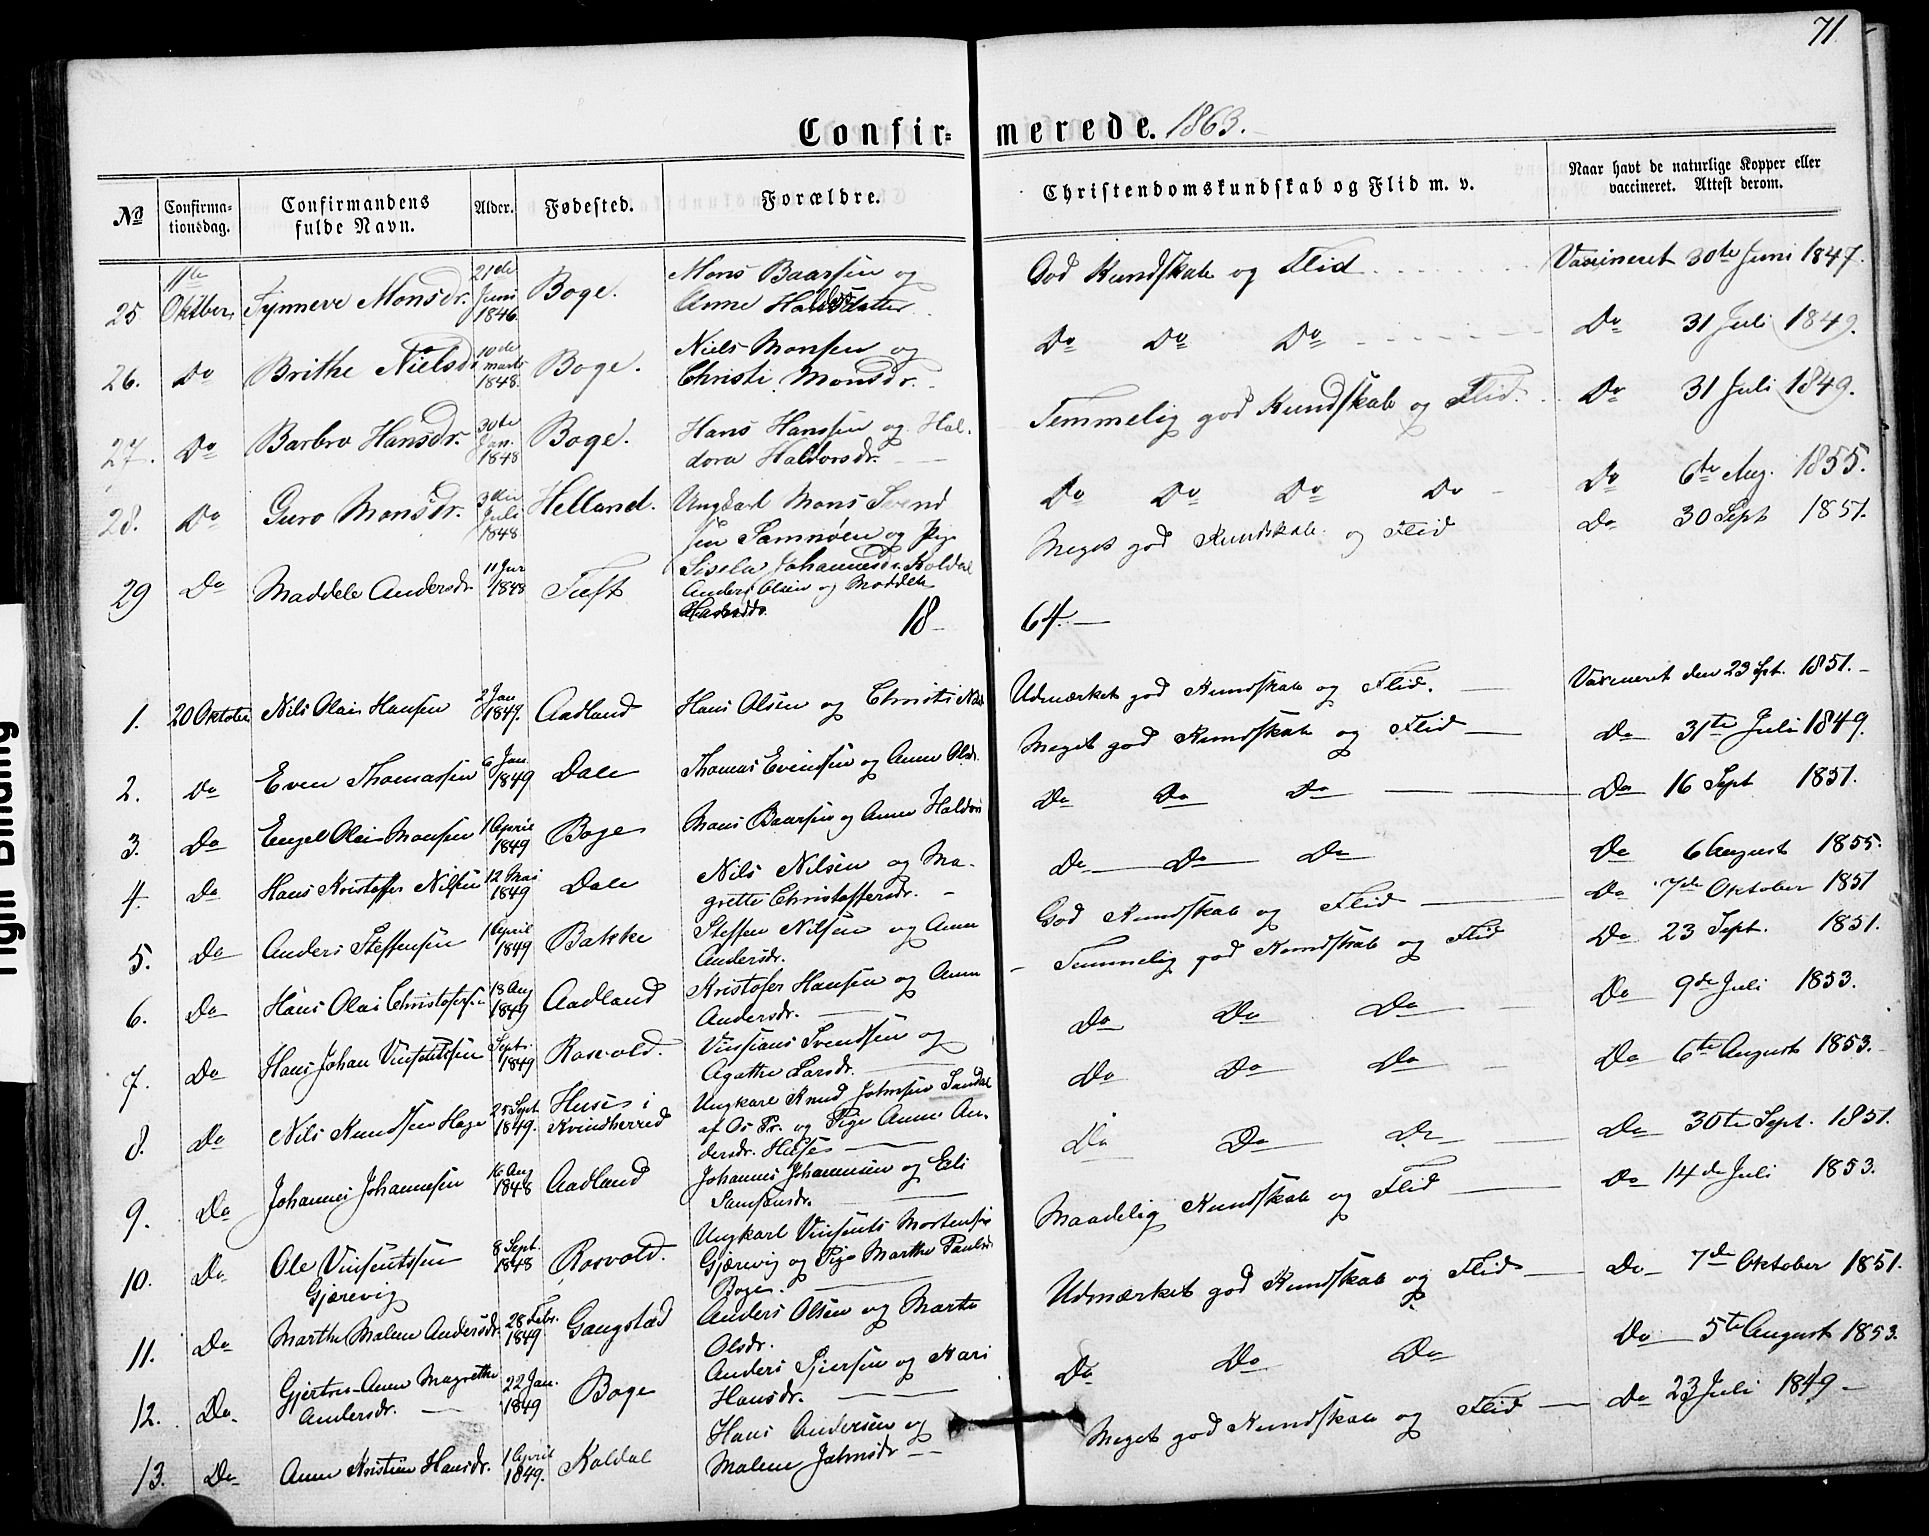 71
Confirmerede. 1863.
№ Confirmationsdag. Confirmandens fulde Navn. Alder. Fødested. Forældre. Christendomskundskab og Flid m. v. Naar havt de naturlige Kopper eller vaccineret. Attest derom.
25. 11te Oktber, Synneve Monsdr. 21de Juni 1846. Boge. Mons Baarsen og Anne datter God Kundskab og Flid Vaxineret 30te Juni 1847.
26. Do Brithe Nielsdr 10de marts 1848. Boge. Niels Monsen og Christi Monsdr. Do Do Do Do 31 Juli 1849.
27. Do Barbro Hansdr. 30te Jan. 1848 Boge. Hans Hanssen og Haldora Haldorsdr. Temmelig god Kundskab og Flid. Do 31 Juli 1849.
28. Do Guro Monsdr. 3die Juli 1848 Helland. Ungkarl Mons Svendsen Samnøen og Pige Sisela Johannesdr. Koldal Do Do Do Do Do 6te Aug. 1855.
29 Do Maddele Andersdr. 11 1848 Tuft Anders Olsen og Maddele Meget god Kundskab og Flid Do 30 Sept 1851.
18 64.
1. 20 Oktober Nils Olai Hansen 2 Jan 1849. Aadland Hans Olsen og Christi Udmærket god Kundskab og Flid. Vaxineret den 23 Spt. 1851.
2. Do Even Thomassen 6 Jan 1849 Dale Thomas Evensen og Anne Olsdr. Meget god Kundskab og Flid Do 31te Juli 1849.
3. Do Engel Olai Monsen 1 April 1849 Boge Mons Baarsen og Anne Haldors Do Do Do Do 16 Sept 1851.
4. Do Hans Kristoffer Nilsen 12 Mai 1849 Dale Nils Nilsen og Magrette Christoffersdr. Do Do Do Do 6 August 1855.
5. Do Anders Steffensen 1 April 1849 Bakke Steffen Nilsen og Anne Andersdr. God Kundskab og Flid Do 7de Oktober 1851
6. Do Hans Olai Christofersen 13 Aug 1849 Aadland Kristofer Hansen og Anne Andersdr. Temmelig god Kundskab og Flid Do 23 Sept. 1851.
7. Do Hans Johan Vinsentsen Sept. 1849 Rosvold. Vinsians Svendsen og Agathe Larsdr. Do Do Do Do 9de Juli 1853.
8. Do Nils Knudsen Hage 25 Sept 1849. Huse i Kvindherred Ungkarl Knud Johnsen Sandal af Os Pr. og Pige Anne Andersdr. Huse Do Do Do Do 6te August 1853.
9. Do Johannes Johannesen 16 Aug 1848 Aadland Johannes Johannesen og Eli Samsonsdr. Do Do Do Do 30te Sept. 1851.
10. Do Ole Vinsentsen Gjærevig 8 Sept. 1848 Rosvold. Ungkarl Vinsents Mortensen Gjærevig og Pige Marthe Paulsdr Boge. Maadelig Kundskab og Flid Do 14de Juli 1853.
11. Do Marthe Malene Andersdr. 28 Febr. 1849. Gangstad Anders Olsen og Marte Olsdr. Udmærket god Kundskab og Flid Do 7de Oktober 1851.
12. Do Gjertru Anne Magrethe Andersdr. 22 Jan. 1849 Boge Anders Sjursen og Kari Hansdr. Do Do Do Do 5te August 1853.
13. Do Anne Kristine Hansdr. 1 April 1849. Koldal Hans Andersen og Malene Johnsdr Meget god Kundskab og Flid Do 23 Juli 1849
Tight Binding